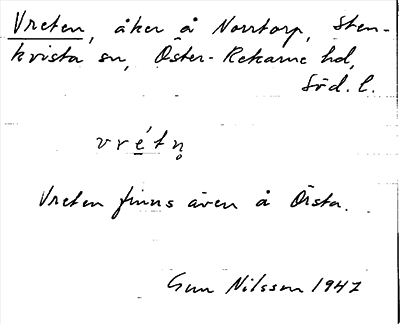 Vreten, åker å Norrtorp, Sten-
kvista sn, Öster-Rekarne hd,
Söd. l.
vré̲tn̥
Vreten finns även å Örsta.
Gun Nilsson 1947